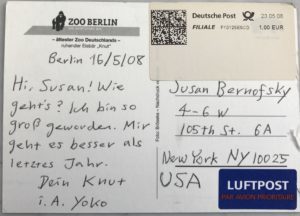 ZOO BERLIN
– ältester Zoo Deutschlands –
ruhender Eisbär „Knut"
Deutsche Post
23.05.08
FILIALE
1,00 EUR
Berlin 16/5/08
Hi, Susan! Wie
geht's? Ich bin so
groß geworden. Mir
geht es besser als
letztes Jahr.
Dein Knut
i.A. Yoko
Susan Bernofsky
4-6 W
105th St. 6A
New York NY 10025
USA
LUFTPOST
PAR AVION PRIORITAIRE